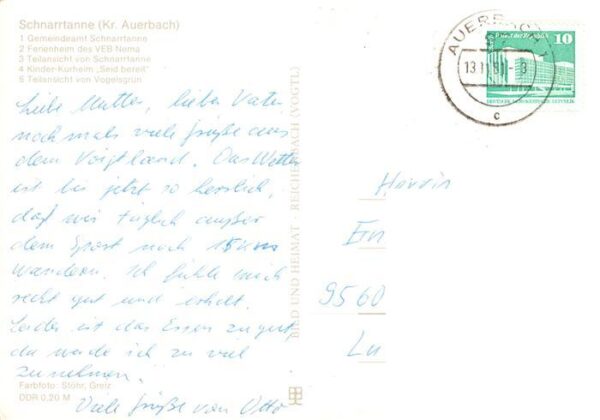 Schnarrtanne (Kr. Auerbach)
1 Gemeindeamt Schnarrtanne
2 Ferienheim des VEB Nema
3 Teilansicht von Schnarrtanne
4 Kinder-Kurheim „Seid bereit“
5 Teilansicht von Vogelsgrün
Liebe Mutter, lieber Vater
nochmals viele Grüße aus
dem Voigtland. Das Wetter
ist bis jetzt so herrlich,
daß wir täglich außer
dem Sport noch 15 km
wandern. Ich fühle mich
recht gut und erholt.
Leider ist das Essen zu gut,
da werde ich zu viel
zunehmen.
Viele Grüße von Otto
Farbfoto: Stöhr, Greiz
DDR 0,20 M
BILD UND HEIMAT · REICHENBACH (VOGTL)
AUERBACH 1
c
10
DEUTSCHE DEMOKRATISCHE REPUBLIK
9560